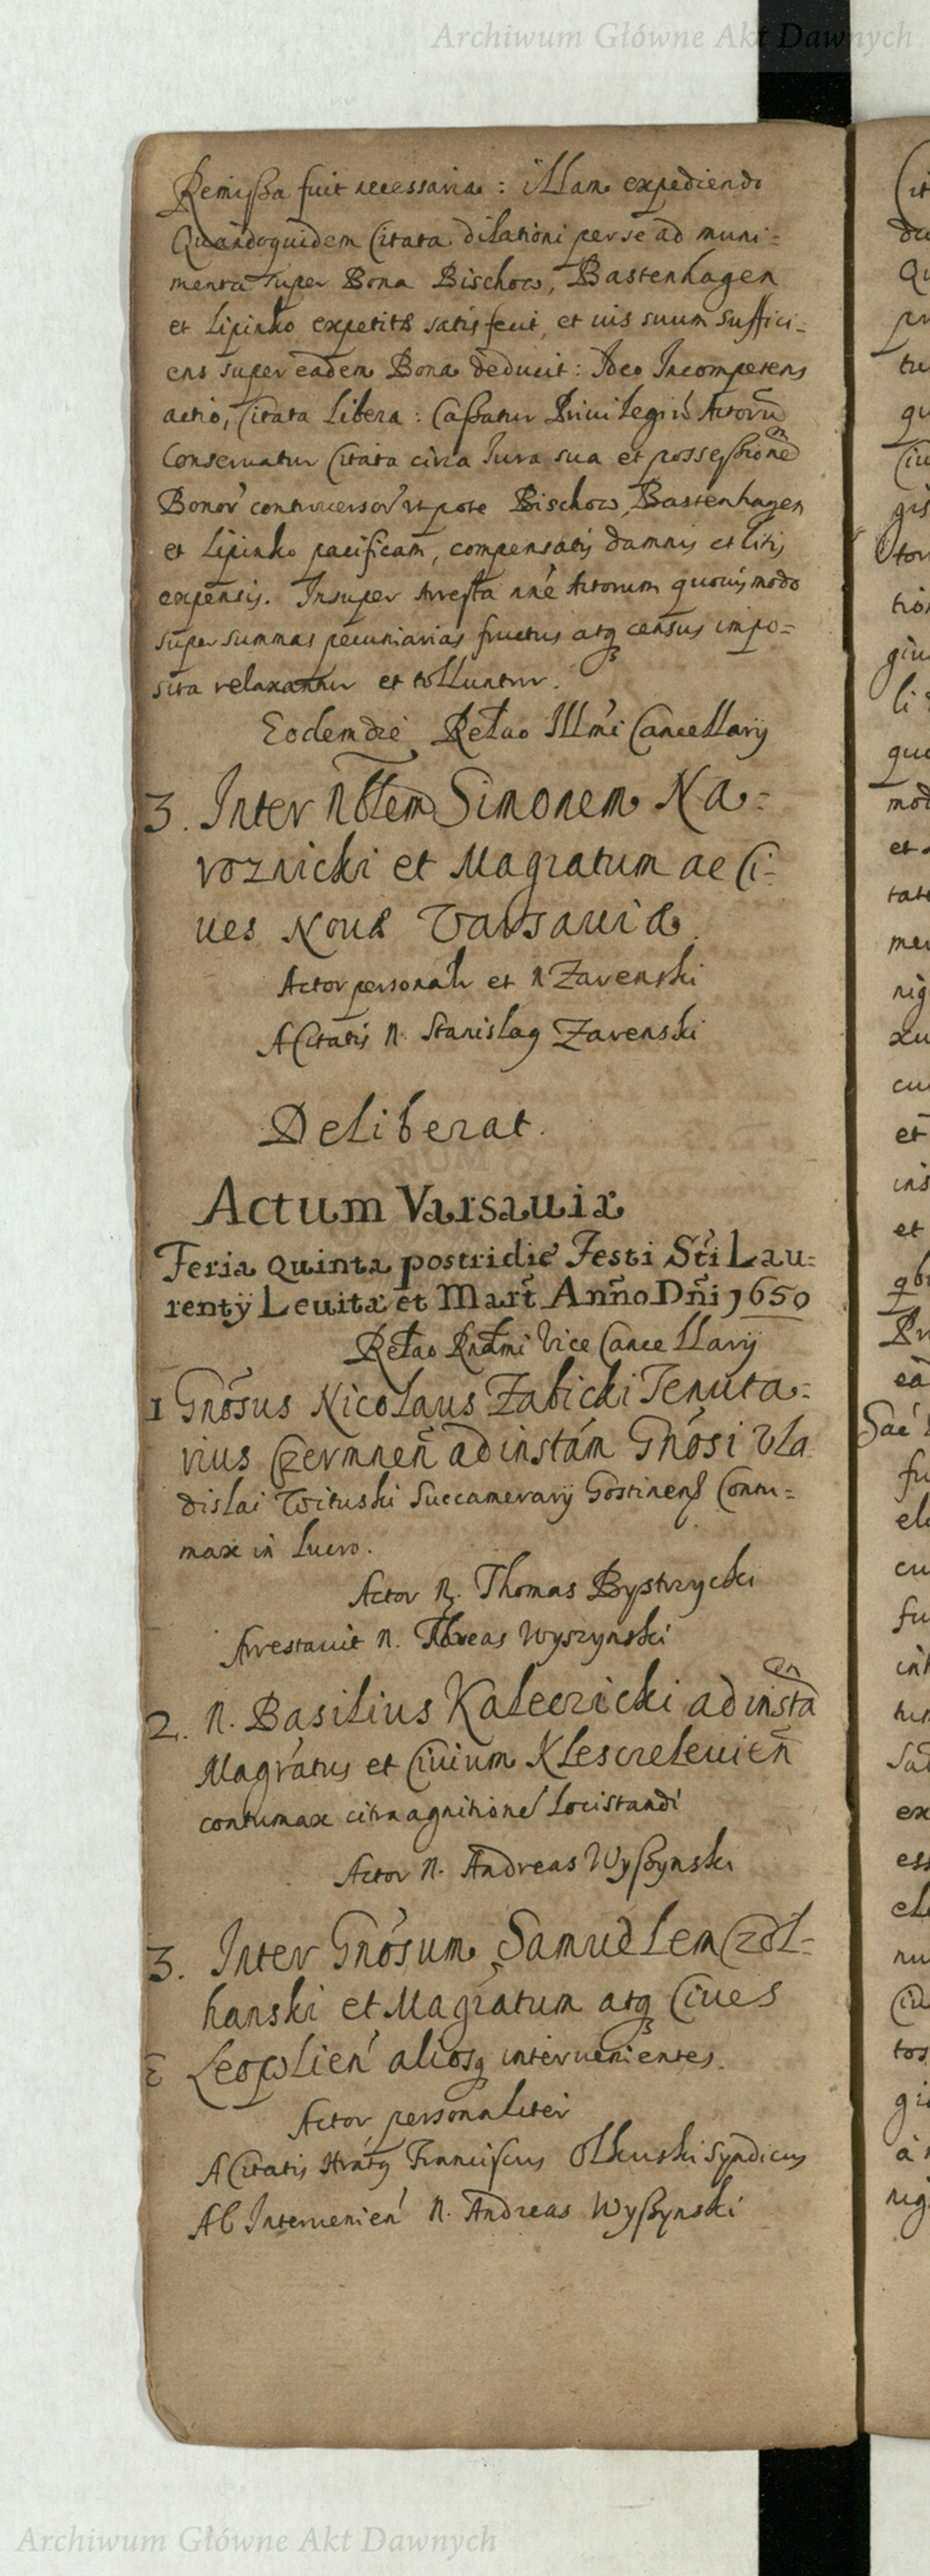 Archiwum Główne Akt Dawnych
Remissa fuit necessaria: illam expediendo
Quandoquidem Citata dilationi per se ad muni=
menta super Bona Bischow, Bastenhagen
et Lipinko expetitæ satisfecit, et ius suum suffici=
ens super eadem Bona deducit: Ideo Incompetens
actio, Citata libera: Cassatur Privilegiũ Actorũ
Conservatur Citata circa Iura sua et possessionem
Bonor' controversor' utpote Bischow, Bastenhagen
et Lipinko pacificam, compensatis damnis et litis
expensis. Insuper Arresta nñe Actorum quovismodo
super summas pecuniarias fructus atq census impo=
sita relaxantur et tolluntur.
Eodem die Relao Illmi Cancellarij
3. Inter Nblem Simonem Na=
roznicki et Magratum ac Ci=
ues Nouæ Varsauiæ.
Actor personalr et N Zarenski
A Citatis N. Stanislaq Zarenski
Deliberat.
Actum Varsauiæ
Feria quinta postridie Festi Sti Lau=
rentij Leuitæ et Mart Anno Dñi 1650
Relao Rndmi Vice Cancellarij
1 Gnosus Nicolaus Zabicki Tenuta=
rius Czermnen ad instam Gnosi Vla
dislai Wituski Succamerarij Gostinens Contu=
max in lucro.
Actor N. Thomas Bystrzycki
Arrestauit N. Andreas Wyszynski
2. N. Basilius Kaleczicki ad instan
Magratus et Ciuium Klesczeleuien
contumax citra agnitione locistandi
Actor N. Andreas Wyssynski
3. Inter Gnosum Samuelem Czol=
hanski et Magratum atq Ciues
Leopolien' aliosq interuenientes.
Actor personaliter
A Citatis Hratq Franciscus Olkuski Syndicus
Ab Interuenien' N. Andreas Wyssynski
Archiwum Główne Akt Dawnych